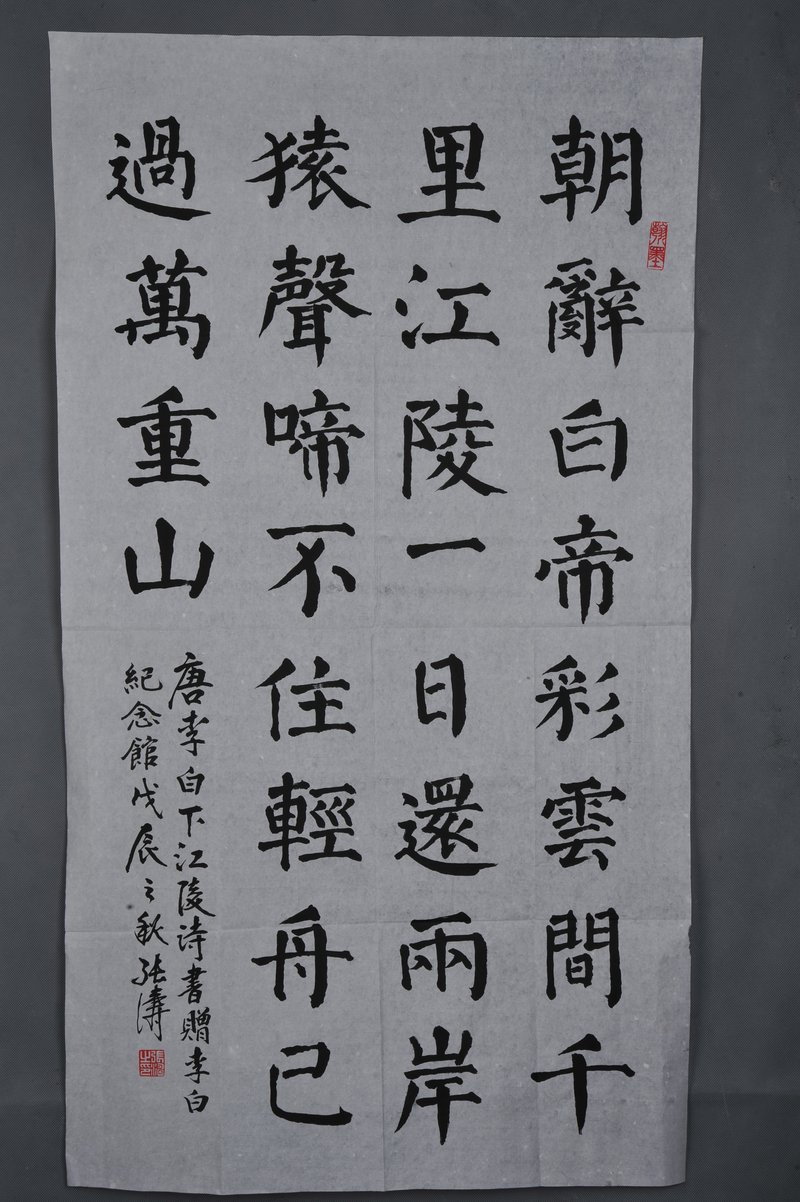 朝辭白帝彩雲間千
里江陵一日還兩岸
猿聲啼不住輕舟已
過萬重山
唐李白下江陵诗書贈李白
紀念館戊辰之秋張濤
翰墨